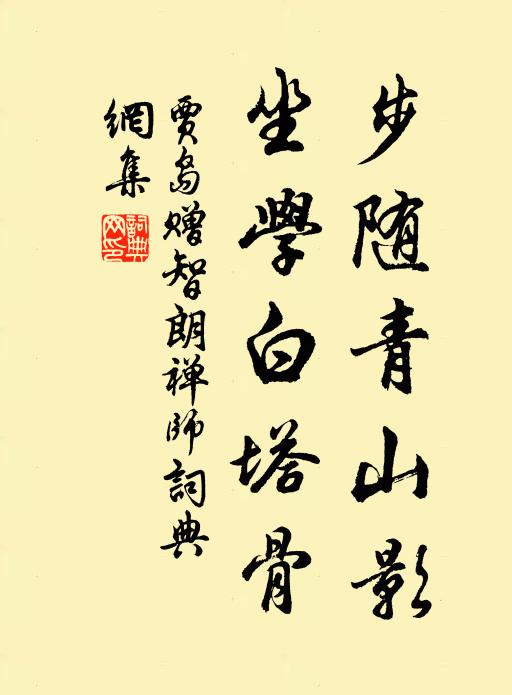 步随青山影
坐學白塔骨
賈島赠智朗禅師詞典
網集
詞典
网印